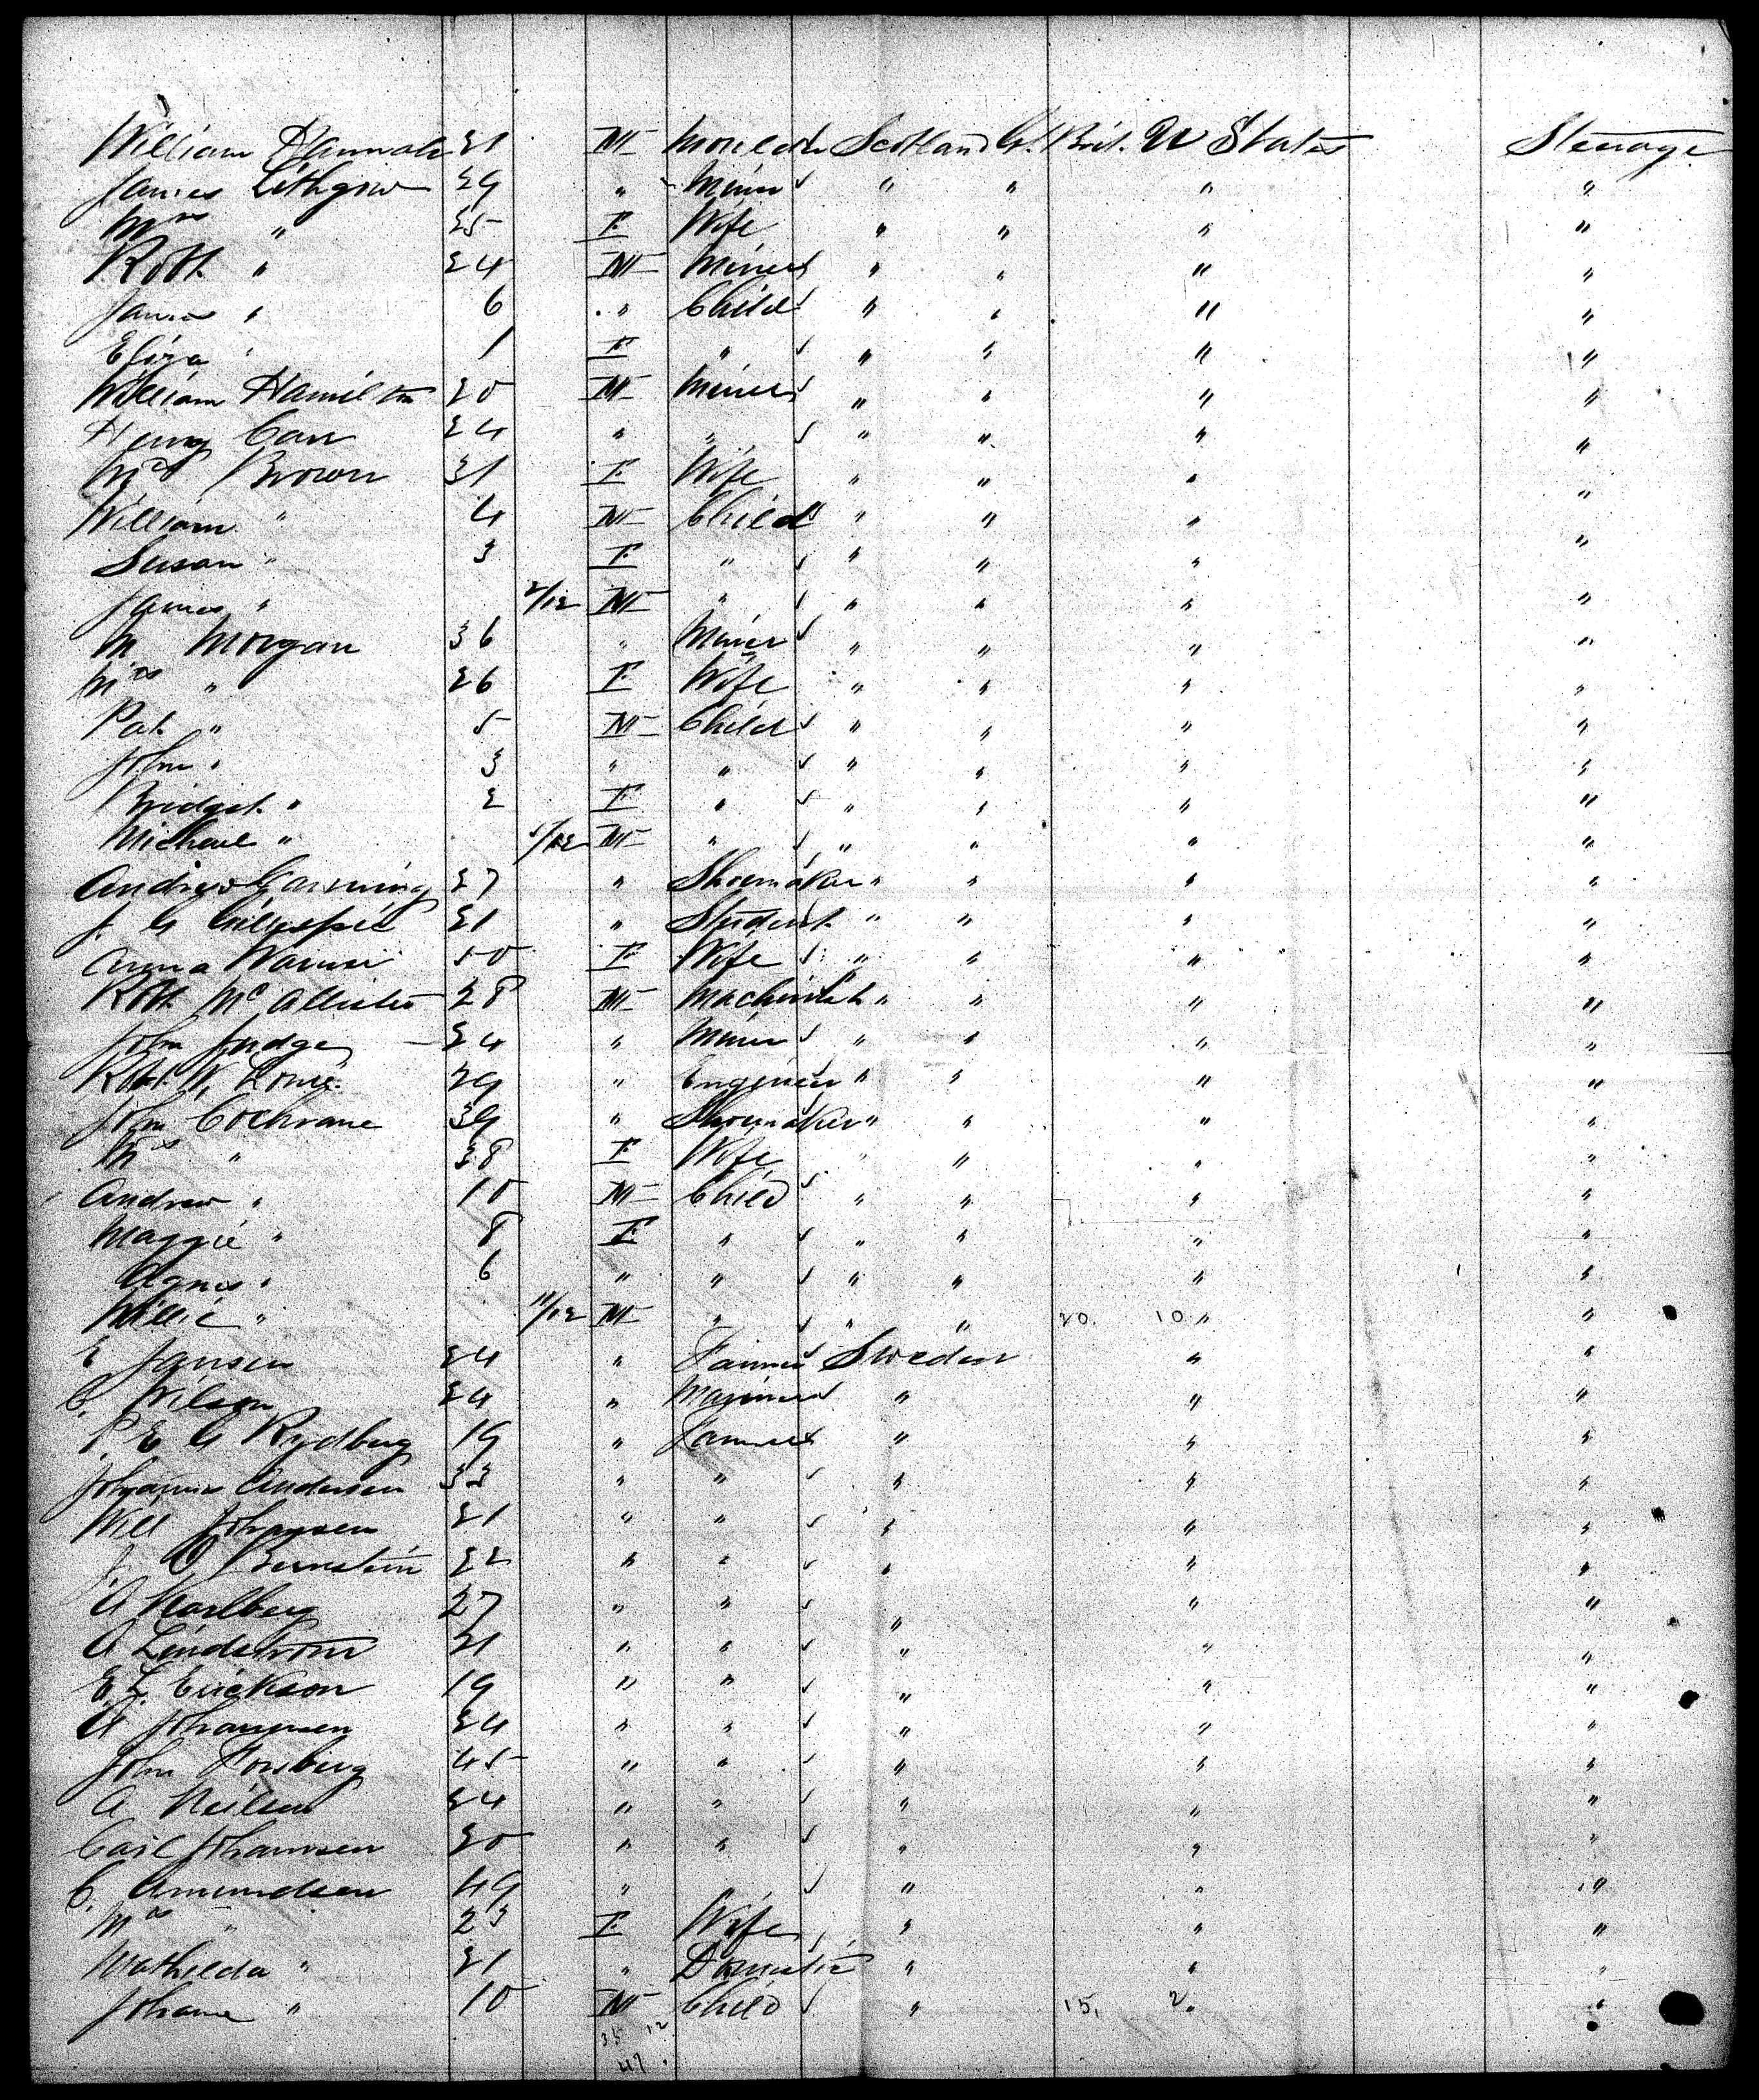 William Hannah 21 M Moulder Scotland Gt. Brit. U States Steerage
James Lithgow 29 " Miner " " " "
Mrs " 25 F Wife " " " "
Robt. " 24 M Miner " " " "
James " 6 " Child " " " "
Eliza " 1 F " " " " "
William Hamilton 20 M Miner " " " "
Henry Carr 24 " " " " " "
Mrs Brown 31 F Wife " " " "
William " 4 M Child " " " "
Susan " 3 F " " " " "
James " 2/12 M " " " " "
M Morgan 36 " Miner " " " "
Mrs " 26 F Wife " " " "
Pat. " 5 M Child " " " "
John " 3 " " " " " "
Bridget. " 2 F " " " " "
Michael " /12 M " " " " "
Andrew 27 " Shoemaker " " " "
J. G Gillespie 21 " Student. " " " "
Anna 50 F Wife " " " "
Robt. McAllister 28 M Machinist " " " "
John Judge 24 " Miner " " " "
Robt. W. 29 " Engineer " " " "
John Cochrane 39 " Shoemaker " " " "
Mrs " 38 F Wife " " " "
Andrew " 10 M Child " " " "
Maggie " 8 F " " " " "
Agnes " 6 " " " " " "
Willie " 11/12 M " " " 20. 10 " "
E Jansen 24 " Farmer Sweden " "
C. Nilson 24 " Mariner " " "
P. E G Rydberg 19 " Farmer " " "
Johannes Andersen 33 " " " " "
Will Johansen 21 " " " " "
J. O Bernstein 22 " " " " "
A Karlberg 27 " " " " "
A Lindstrom 21 " " " " "
E. L. Erickson 19 " " " " "
A Johannsen 24 " " " " "
John Forsberg 45 " " " " "
A Neilsen 24 " " " " "
Carl Johannsen 20 " " " " "
C. Amundsen 49 " " " " "
Mrs " 23 F Wife " " "
Mathilda " 21 " Domestic " " "
Johane " 10 M Child " 15, 2. "
35 12
47